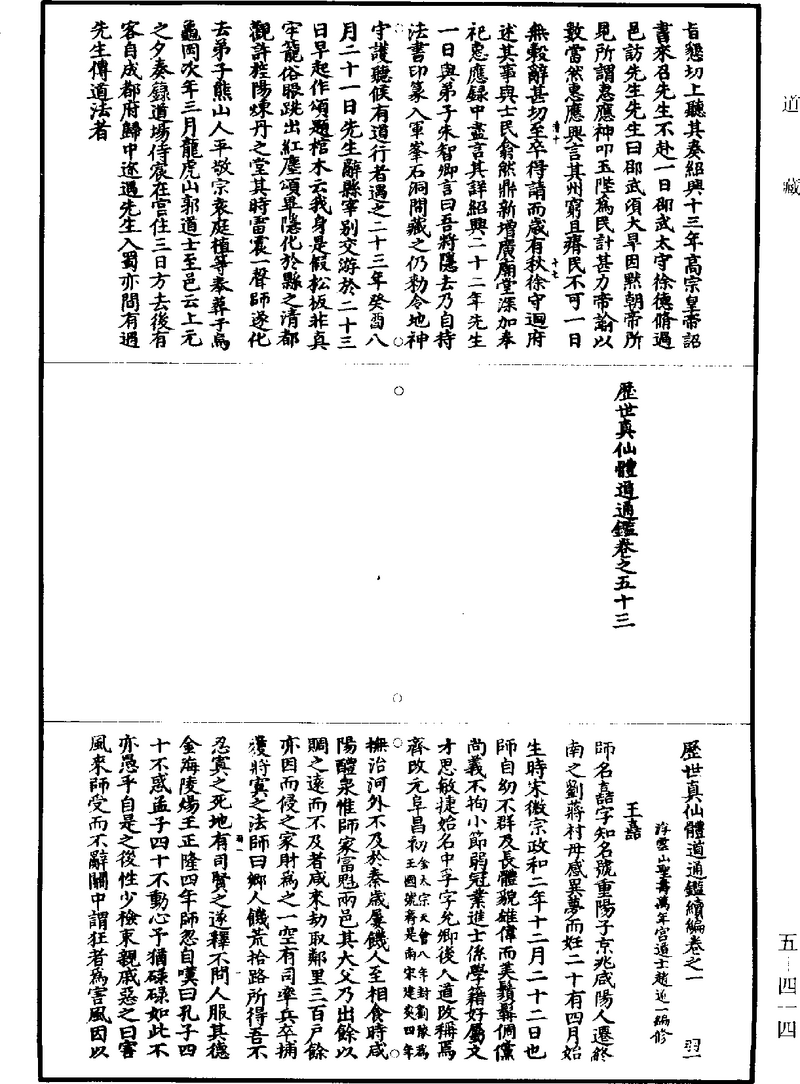 道藏
旨懇切上聽其奏紹興十三年高宗皇帝詔
書來召先生不赴一日邵武太守徐德脩過
邑訪先生先生曰邵武須大旱因黙朝帝所
見所謂惠應神叩玉陛為民計甚力帝諭以
數當然惠應輿言其州窮且瘠民不可一日
無穀辭甚切至卒得請而歲有秋徐守迴府
述其事與士民翕然鼎新增廣廟堂深加奉
祀惠應録中盡言其詳紹興二十二年先生
一日與弟子朱智卿言曰吾將隱去乃自持
法書印篆入軍峯石洞間藏之仍勑令地神
守護聽候有道行者遇之二十三年癸酉八
月二十一日先生辭縣宰別交游於二十三
日早起作頌題棺木云我身是假松板非真
牢籠俗眼跳出紅塵頌畢隱化於縣之清都
觀許旌陽煉丹之堂其時雷震一聲師遂化
去弟子熊山人平敬宗袁庭植等奉葬于烏
龜岡次年三月龍虎山郭道士至邑云上元
之夕奏籙道場侍宸在嘗住三日方去後有
客自成都府歸中途遇先生入蜀亦問有遇
先生傳道法者
歷世真仙體道通鑑卷之五十三
歷世真仙體道通鑑續編卷之一 羽一
浮雲山聖壽萬年宮道士趙道一編修
王嚞
師名嚞字知名號重陽子京兆咸陽人遷終
南之劉蔣村母感異夢而妊二十有四月始
生時宋徽宗政和二年十二月二十二日也
師自幼不群及長體貌雄偉而美鬚髯倜儻
尚義不拘小節弱冠業進士係學籍好屬文
才思敏捷始名中孚字允卿後入道改稱焉
齊改元阜昌初金太宗天會八年封劉豫為王國號齊是南宋建炎四年
撫治河外不及於秦歲屢饑人至相食時咸
陽醴泉惟師家富魁兩邑其大父乃出餘以
賙之遠而不及者咸來劫取鄰里三百戶餘
亦因而侵之家財為之一空有司率兵卒捕
獲將寘之法師曰鄉人饑荒拾路所得吾不
忍寘之死地有司賢之遂釋不問人服其德
金海陵煬王正隆四年師忽自嘆曰孔子四
十不惑孟子四十不動心予猶碌碌如此不
亦愚乎自是之後性少檢束親戚惡之曰害
風來師受而不辭關中謂狂者為害風因以
五-四一四